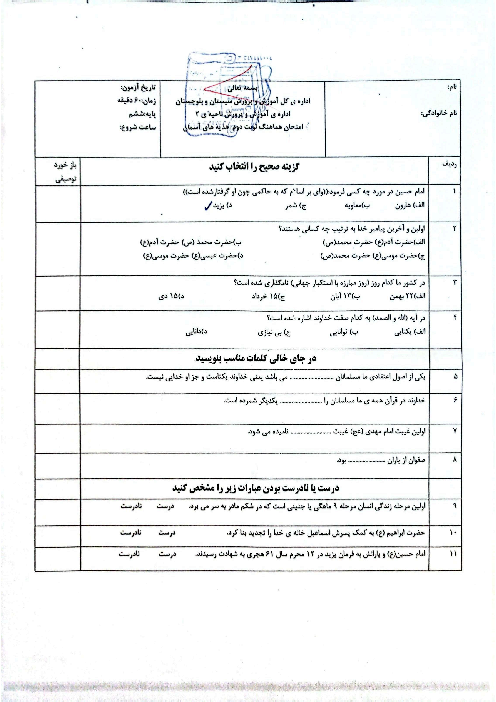 بسمه تعالی
نام:
نام خانوادگی:
اداره ی کل آموزش و پرورش سیستان و بلوچستان
اداره ی آموزش و پرورش ناحیه ی ۲
امتحان هماهنگ نوبت دوم هدیه های آسمان
تاریخ آزمون:
زمان: ۶۰ دقیقه
پایه: ششم
ساعت شروع:
ردیف
گزینه صحیح را انتخاب کنید
باز خورد توصیفی
۱ امام حسین در مورد چه کسی فرمود:((وای بر اسلام که به حاکمی چون او گرفتار شده است))
الف) هارون ب)معاویه ج) شمر د) یزید ✓
۲ اولین و آخرین پیامبر خدا به ترتیب چه کسانی هستند؟
الف)حضرت آدم(ع) حضرت محمد(ص) ب)حضرت محمد (ص) حضرت آدم(ع)
ج)حضرت موسی(ع) حضرت محمد(ص) د)حضرت عیسی(ع) حضرت موسی(ع)
۳ در کشور ما کدام روز (روز مبارزه با استکبار جهانی) نامگذاری شده است؟
الف)۲۲ بهمن ب)۱۳ آبان ج)۱۵ خرداد د)۱۵ دی
۴ در آیه (الله و الصمد) به کدام صفت خداوند اشاره شده است؟
الف) یکتایی ب) توانایی ج) بی نیازی د)دانایی
در جای خالی کلمات مناسب بنویسید
۵ یکی از اصول اعتقادی ما مسلمانان .................... می باشد یعنی خداوند یکتاست و جز او خدایی نیست.
۶ خداوند در قرآن همه ی ما مسلمانان را .................... یکدیگر شمرده است.
۷ اولین غیبت امام مهدی (عج) غیبت .................... نامیده می شود.
۸ صفوان از یاران .................... بود.
درست یا نادرست بودن عبارات زیر را مشخص کنید
۹ اولین مرحله زندگی انسان مرحله ۹ ماهگی یا جنینی است که در شکم مادر به سر می برد. درست نادرست
۱۰ حضرت ابراهیم (ع) به کمک پسرش اسماعیل خانه ی خدا را تجدید بنا کرد. درست نادرست
۱۱ امام حسین(ع) و یارانش به فرمان یزید در ۱۲ محرم سال ۶۱ هجری به شهادت رسیدند. درست نادرست